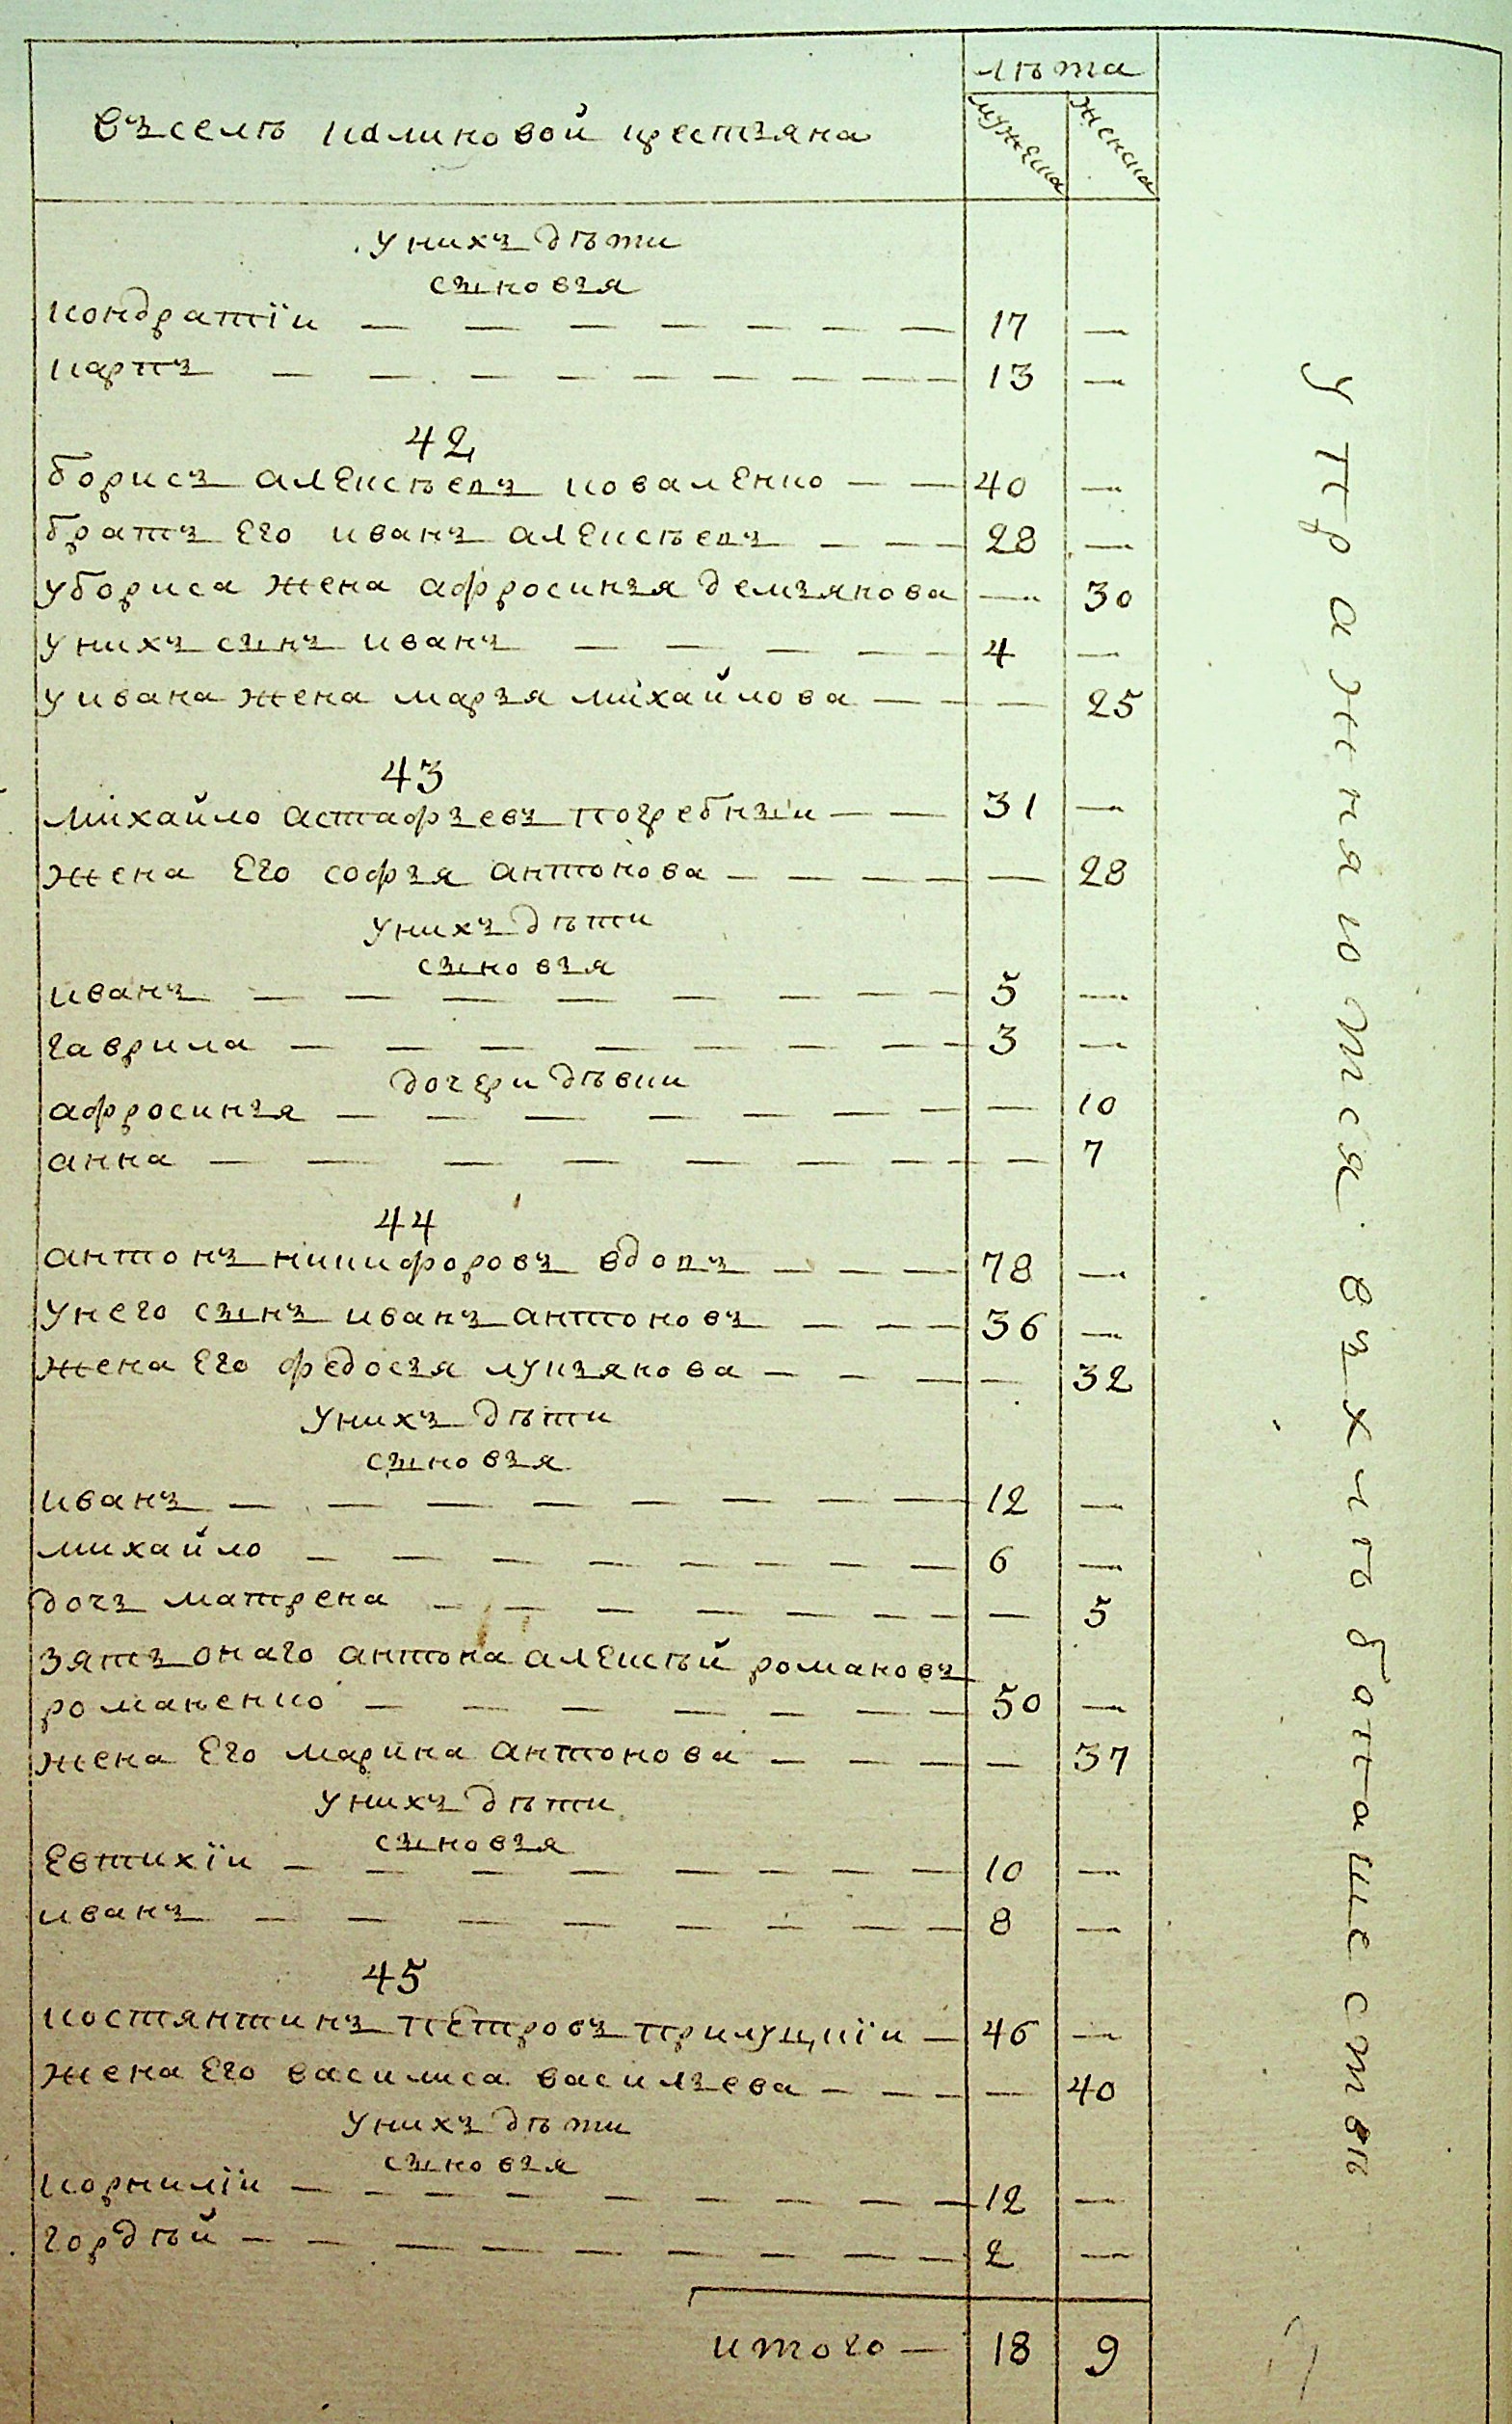 лѣта
въселѣ калиновой крестьяна
мужеска
женска
унихъ дѣти
сыновья
кондратїи — 17 —
карпъ — 13 —
42
борисъ алексѣевъ коваленко — 40 —
братъ его иванъ алексѣевъ — 28 —
убориса жена афросинья демьянова — 30
унихъ сынъ иванъ — 4 —
уивана жена марья михайлова — 25
43
михайло астафьевъ погребныи — 31 —
жена его софья антонова — 28
унихъ дѣти
сыновья
иванъ — 5 —
гаврила — 3 —
дочери дѣвки
афросинья — 10
анна — 7
44
антонъ никифоровъ вдовъ — 78 —
унего сынъ иванъ антоновъ — 36 —
жена его федосья лукьянова — 32
унихъ дѣти
сыновья
иванъ — 12 —
михайло — 6 —
дочь матрена — 5
зять онаго антона алексѣй романовъ
романенко — 50 —
жена его марина антонова — 37
унихъ дѣти
сыновья
евтихїи — 10 —
иванъ — 8 —
45
костянтинъ петровъ прилуцкїи — 46 —
жена его василиса васильева — 40
унихъ дѣти
сыновья
корнилїи — 12 —
гордѣй — 2 —
итого — 18 9
упражняются въ хлѣбопашествѣ